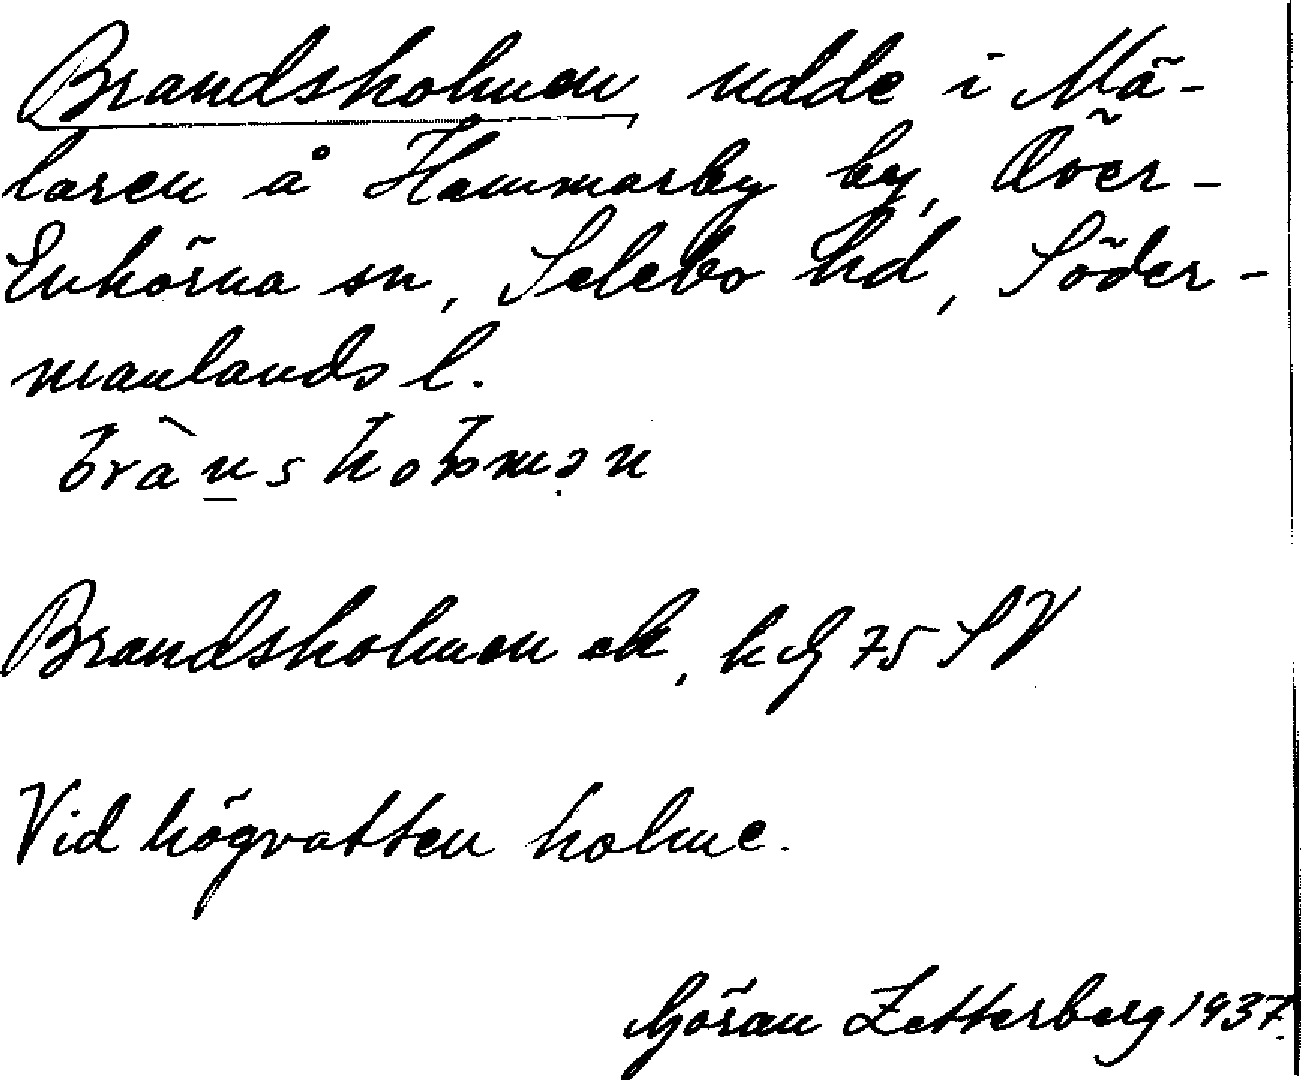 Brandsholmen udde i Mä-
laren å Hammarby by, Över-
Enhörna sn, Selebo hd, Söder-
manlands l.
Brandsholmen ek, k G 75 SV
Vid högvatten holme.
Göran Zetterberg 1937.